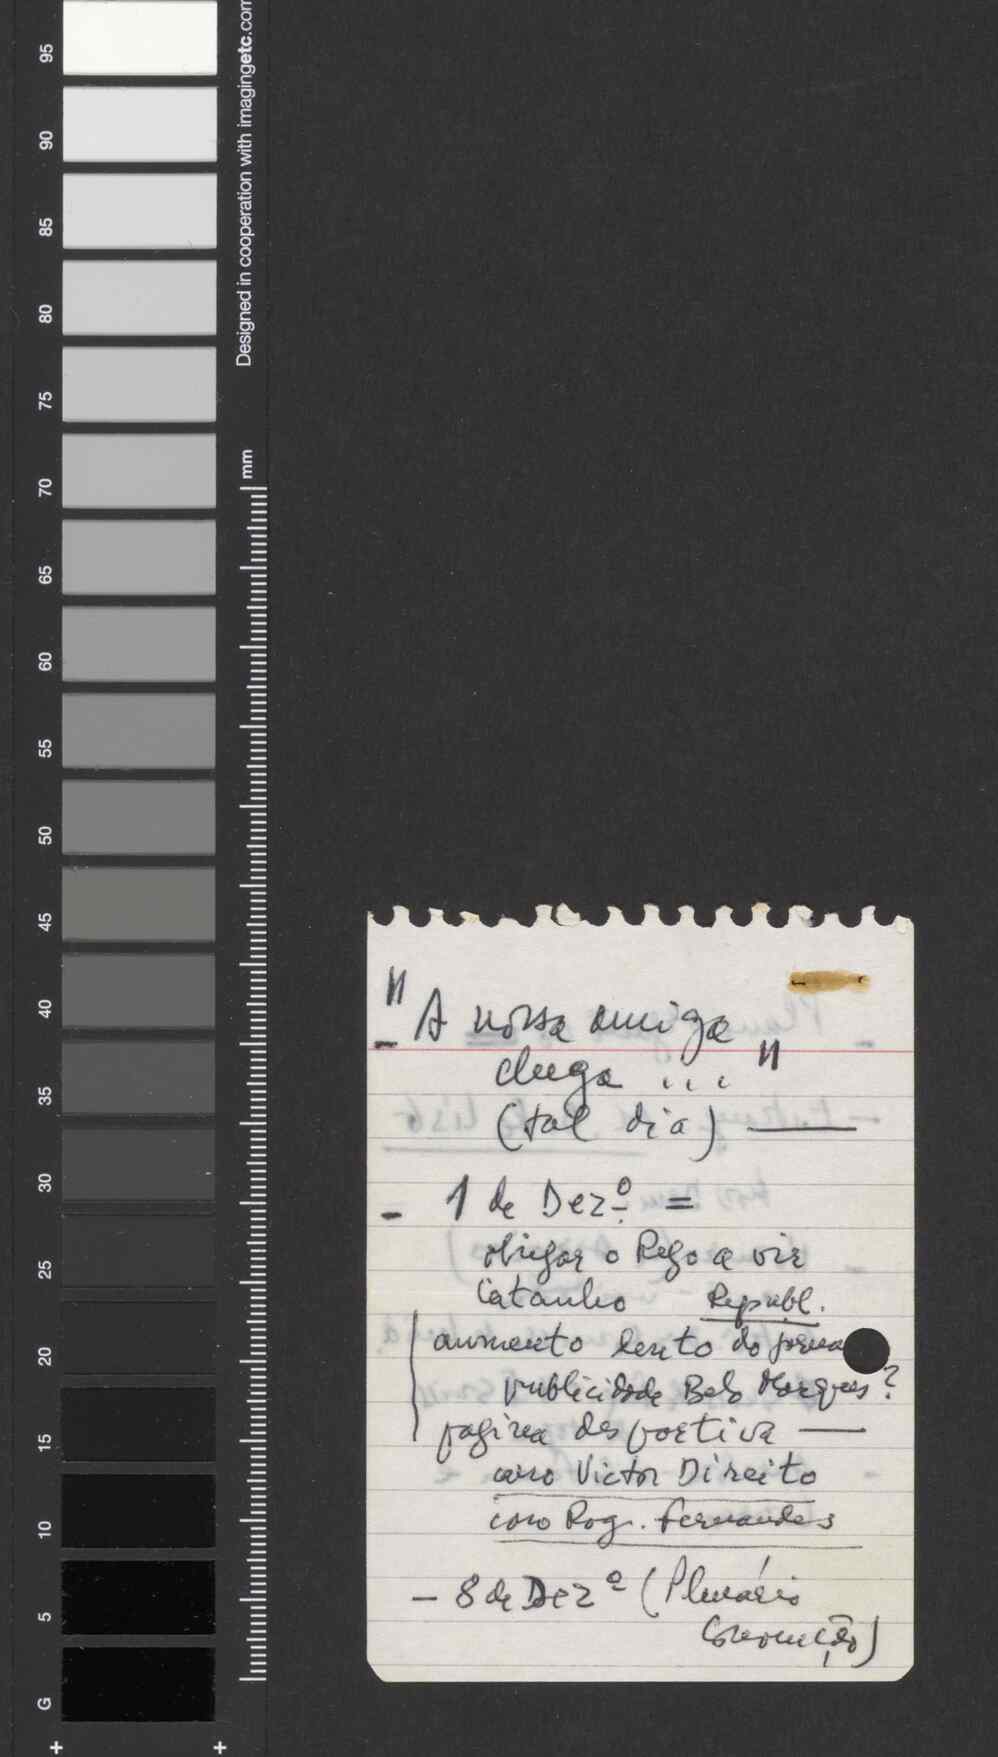 95
90
85
80
75
70
65
60
55
50
45
40
35
30
25
20
15
10
5
G
Designed in cooperation with imagingetc.com
mm
" - A nossa amiga
chega ... "
(tal dia) ——
- 1 de Dezº =
obrigar o Rego a vir
Catanho Republ.
aumento lento do jornal
publicidade Belo Marques?
página desportiva ——
caso Victor Direito
caso Rog. Fernandes
- 8 de Dezº (Plenário